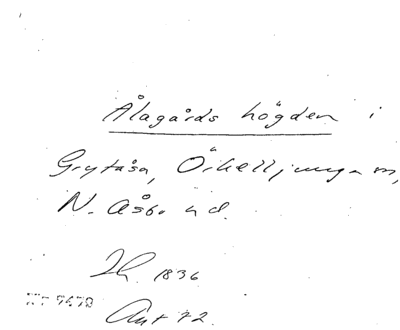 Ålagårds högden i
Grytåsa, Örkelljunga sn,
N. Åsbo hd.
Lh. 1836
Ant 72.